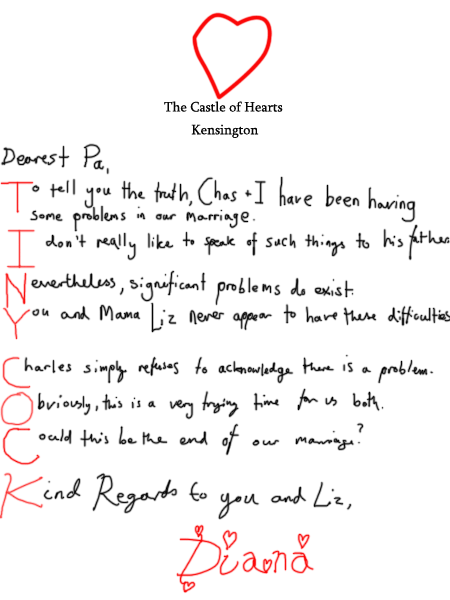 The Castle of Hearts
Kensington
Dearest Pa,
To tell you the truth, Chas + I have been having
some problems in our marriage.
I don't really like to speak of such things to his father.
Nevertheless, significant problems do exist.
You and Mama Liz never appear to have these difficulties
Charles simply refuses to acknowledge there is a problem.
Obviously, this is a very trying time for us both.
Could this be the end of our marriage?
Kind Regards to you and Liz,
Diana